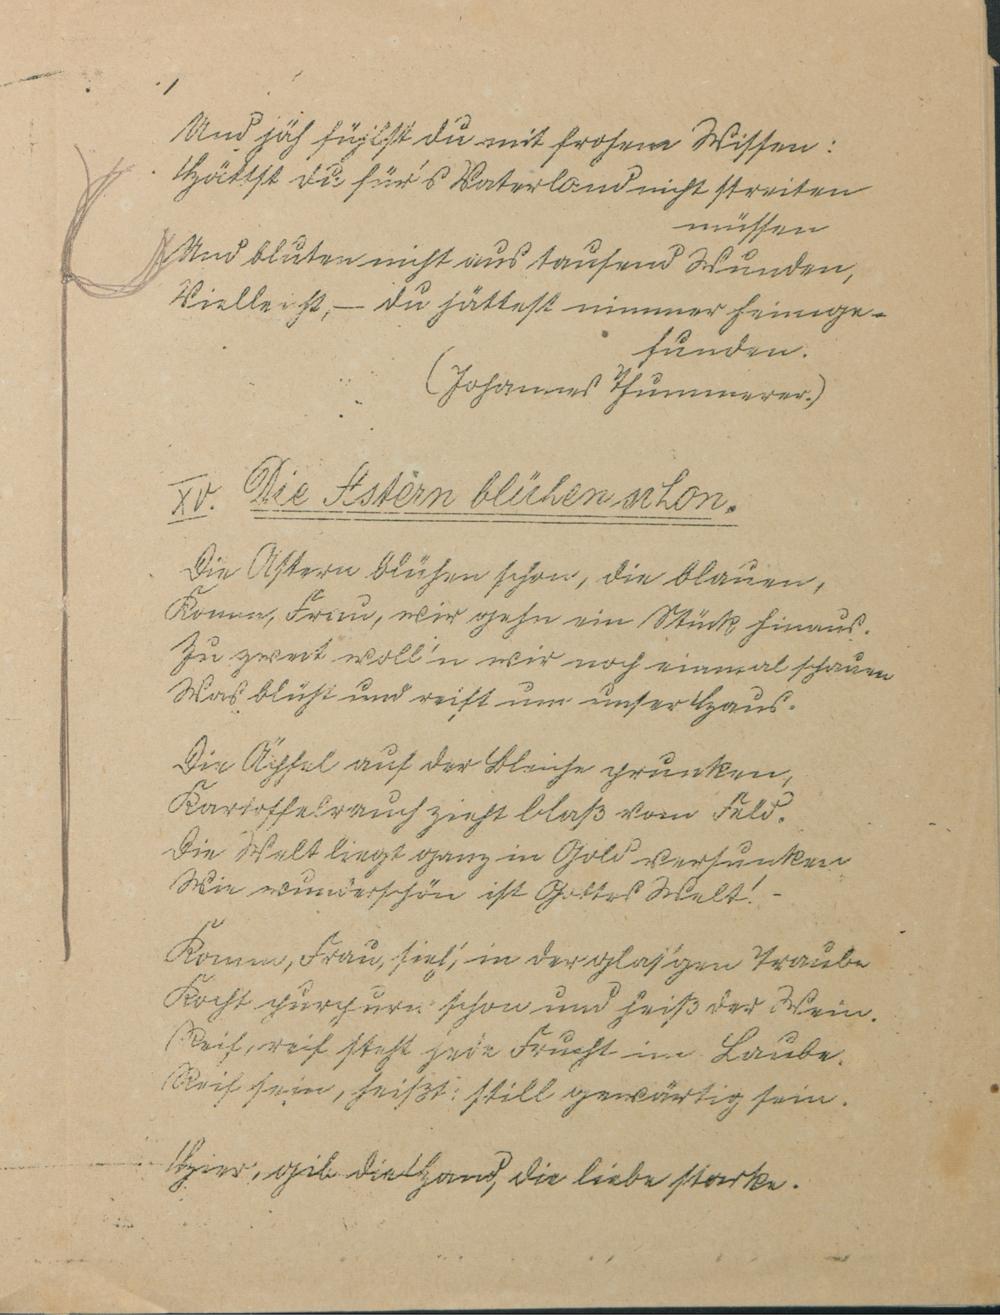 Und jäh fühlst du mit frohem Wissen:
Hättst du für's Vaterland nicht streiten
müssen
Und bluten nicht aus tausend Wunden,
Vielleicht, — du hättest nimmer heimge-
funden.
(Johannes Thummerer.)
XV. Die Astern blühen schon.
Die Astern blühen schon, die blauen,
Komm, Frau, wir gehn ein Stück hinaus.
Zu zweit woll'n wir noch einmal schauen
Was blüht und reift um unser Haus.
Die Äpfel auf der Bleiche prunken,
Kartoffelrauch zieht blaß vom Feld.
Die Welt liegt ganz in Gold versunken
Wie wunderschön ist Gottes Welt! -
Komm, Frau, sieh', in der glas'gen Traube
Kocht purpurn schon und heiß der Wein.
Reif, reif steht jede Frucht im Laube.
Reif sein, heißt: still gewärtig sein.
Hier, gib die Hand, die liebe starke.